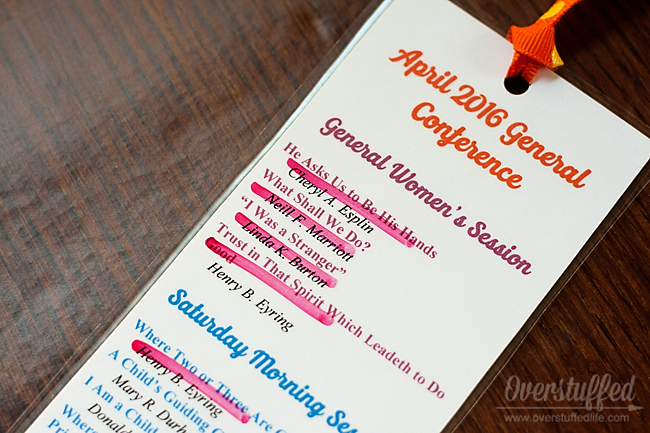 April 2016 General
Conference
General Women's Session
He Asks Us to Be His Hands
Cheryl A. Esplin
What Shall We Do?
Neill F. Marriott
"I Was a Stranger"
Linda K. Burton
Trust in That Spirit Which Leadeth to Do
Good
Henry B. Eyring
Saturday Morning Se
Where Two or Three Are
Henry B. Eyring
A Child's Guiding
I Am a Child
Mary R. Durh
Donald
Where
Overstuffed
www.overstuffedlife.com